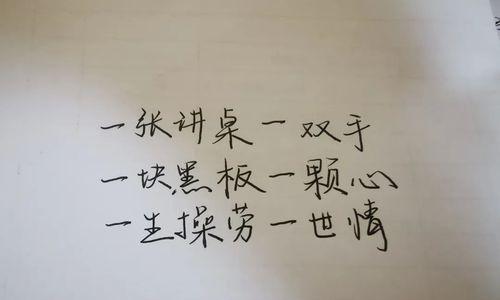 一张讲桌一双手
一块黑板一颗心
一生操劳一世情